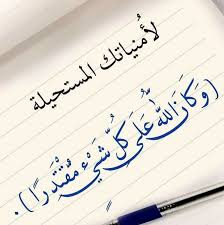 لأمنياتك المستحيلة
(وَكَانَ اللَّهُ عَلَىٰ كُلِّ شَيْءٍ مُّقْتَدِرًا) .